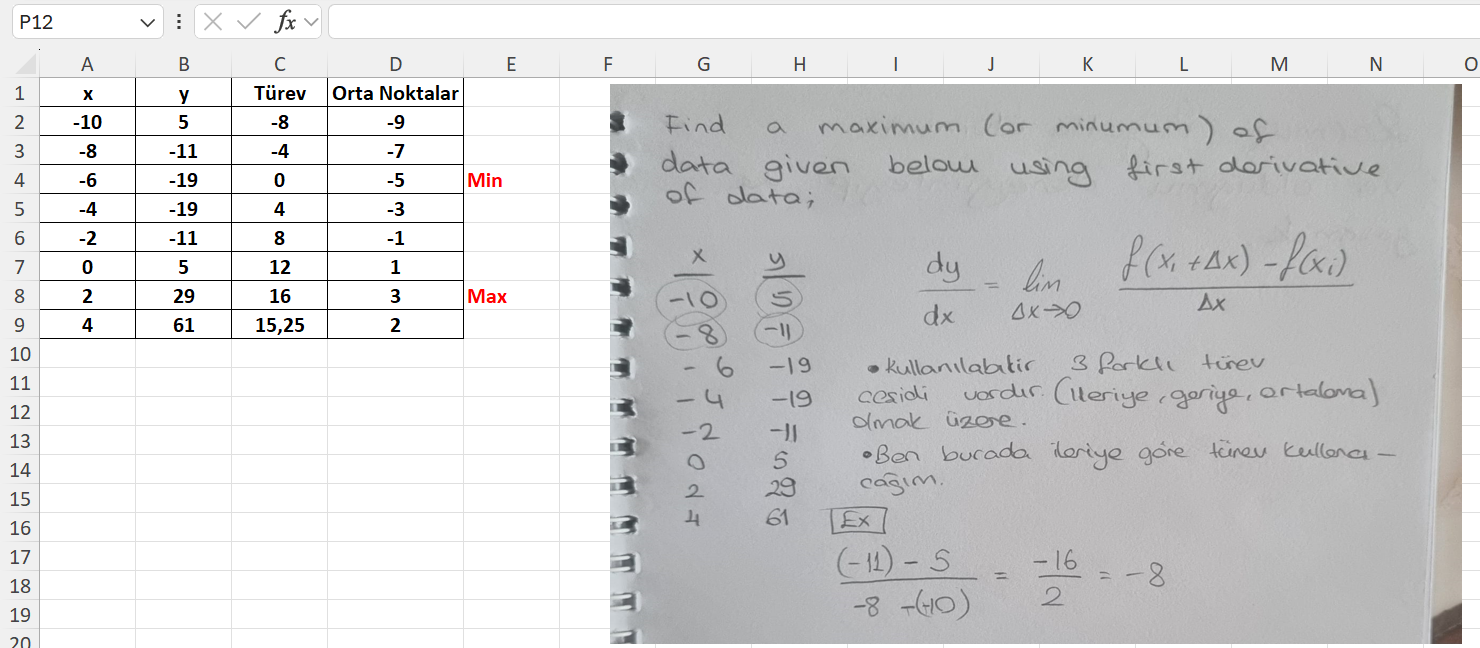 P12
fx
A B C D E F G H I J K L M N O
1 x y Türev Orta Noktalar
2 -10 5 -8 -9
3 -8 -11 -4 -7
4 -6 -19 0 -5 Min
5 -4 -19 4 -3
6 -2 -11 8 -1
7 0 5 12 1
8 2 29 16 3 Max
9 4 61 15,25 2
10
11
12
13
14
15
16
17
18
19
20
Find a maximum (or minumum) of
data given below using first derivative
of data;
x y
-10 5
-8 -11
-6 -19
-4 -19
-2 -11
0 5
2 29
4 61
dy/dx = lim Δx→0 f(xi+Δx) - f(xi) / Δx
• kullanılabilir 3 farklı türev
çeşidi vardır. (ileriye, geriye, ortalama)
olmak üzere.
• Ben burada ileriye göre türev kullana-
cağım.
Ex
(-11) - 5 / -8 -(-10) = -16 / 2 = -8